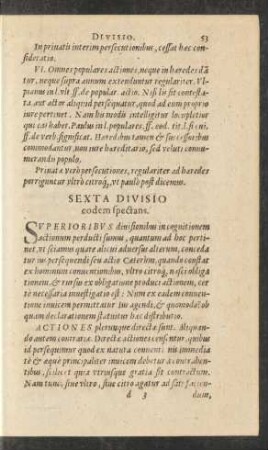 DIVISIO. 53
In priuatis interim persecutionibus, cessat hæc con-
sideratio.
VI. Omnes populares actiones, neque in hæredes dã
tur, neque supra annum extenduntur regulariter. Vl-
pianus in l. vlt. ff. de popular. actio. Nisi lis sit contesta-
ta, aut actor aliquid persequatur, quod ad eum proprio
iure pertinet. Nam hic neodii intelligitur locupletior
qui eas habet. Paulus in l. populares. ff. eod. tit. l. si cui.
ff. de verb. significat. Hæredibus tamen & successoribus
commodantur, non iure hæreditario, sed veluti connu-
merando populo.
Priuatæ verò persecutiones, regulariter ad hæredes
porriguntur vltro citroq́, vt paulò post dicemus.
SEXTA DIVISIO
eodem spectans.
SVPERIORIBVS diuisionibus in cognitionem
actionum perducti sumus, quantum ad hoc perti-
net, vt sciamus quare alicui aduersus alterum, conceda
tur ius persequendi seu actio. Cæterùm, quando constat
ex hominum conuentionibus, vltro citroq́, nasci obliga
tionem, & rursus ex obligatione produci actiones, cer-
tè necessaria inuestigatio est: Num ex eadem conuen-
tione inuicem permittatur ius agendi, & quomodo? ob
quam declarationem statuitur hæc distributio.
ACTIONES plerunque directæ sunt. Aliquan-
do autem contrariæ. Directæ actiones censentur, quibus
id persequimur quod ex natura conuentionis immedia
tè & æquè principaliter inuicem debetur à contrahen-
tibus, scilicet quia vtriusque gratia sit contractum.
Nam tunc, siue vltro, siue citro agatur ad satisfacien-
d 3 dum,